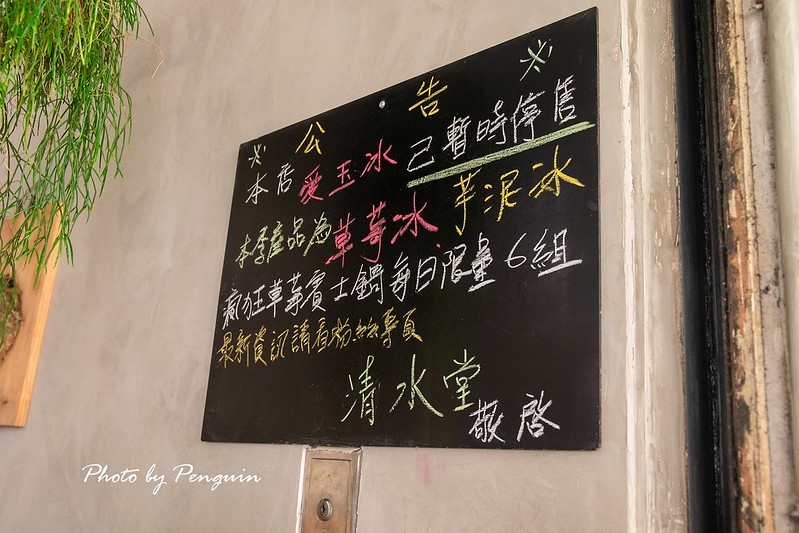 ※公告※
本店愛玉冰已暫時停售
本季產品為草莓冰芋泥冰
瘋狂草莓賓士鍋每日限量6組
最新資訊請看粉絲專頁
清水堂
敬啓
Photo by Penguin